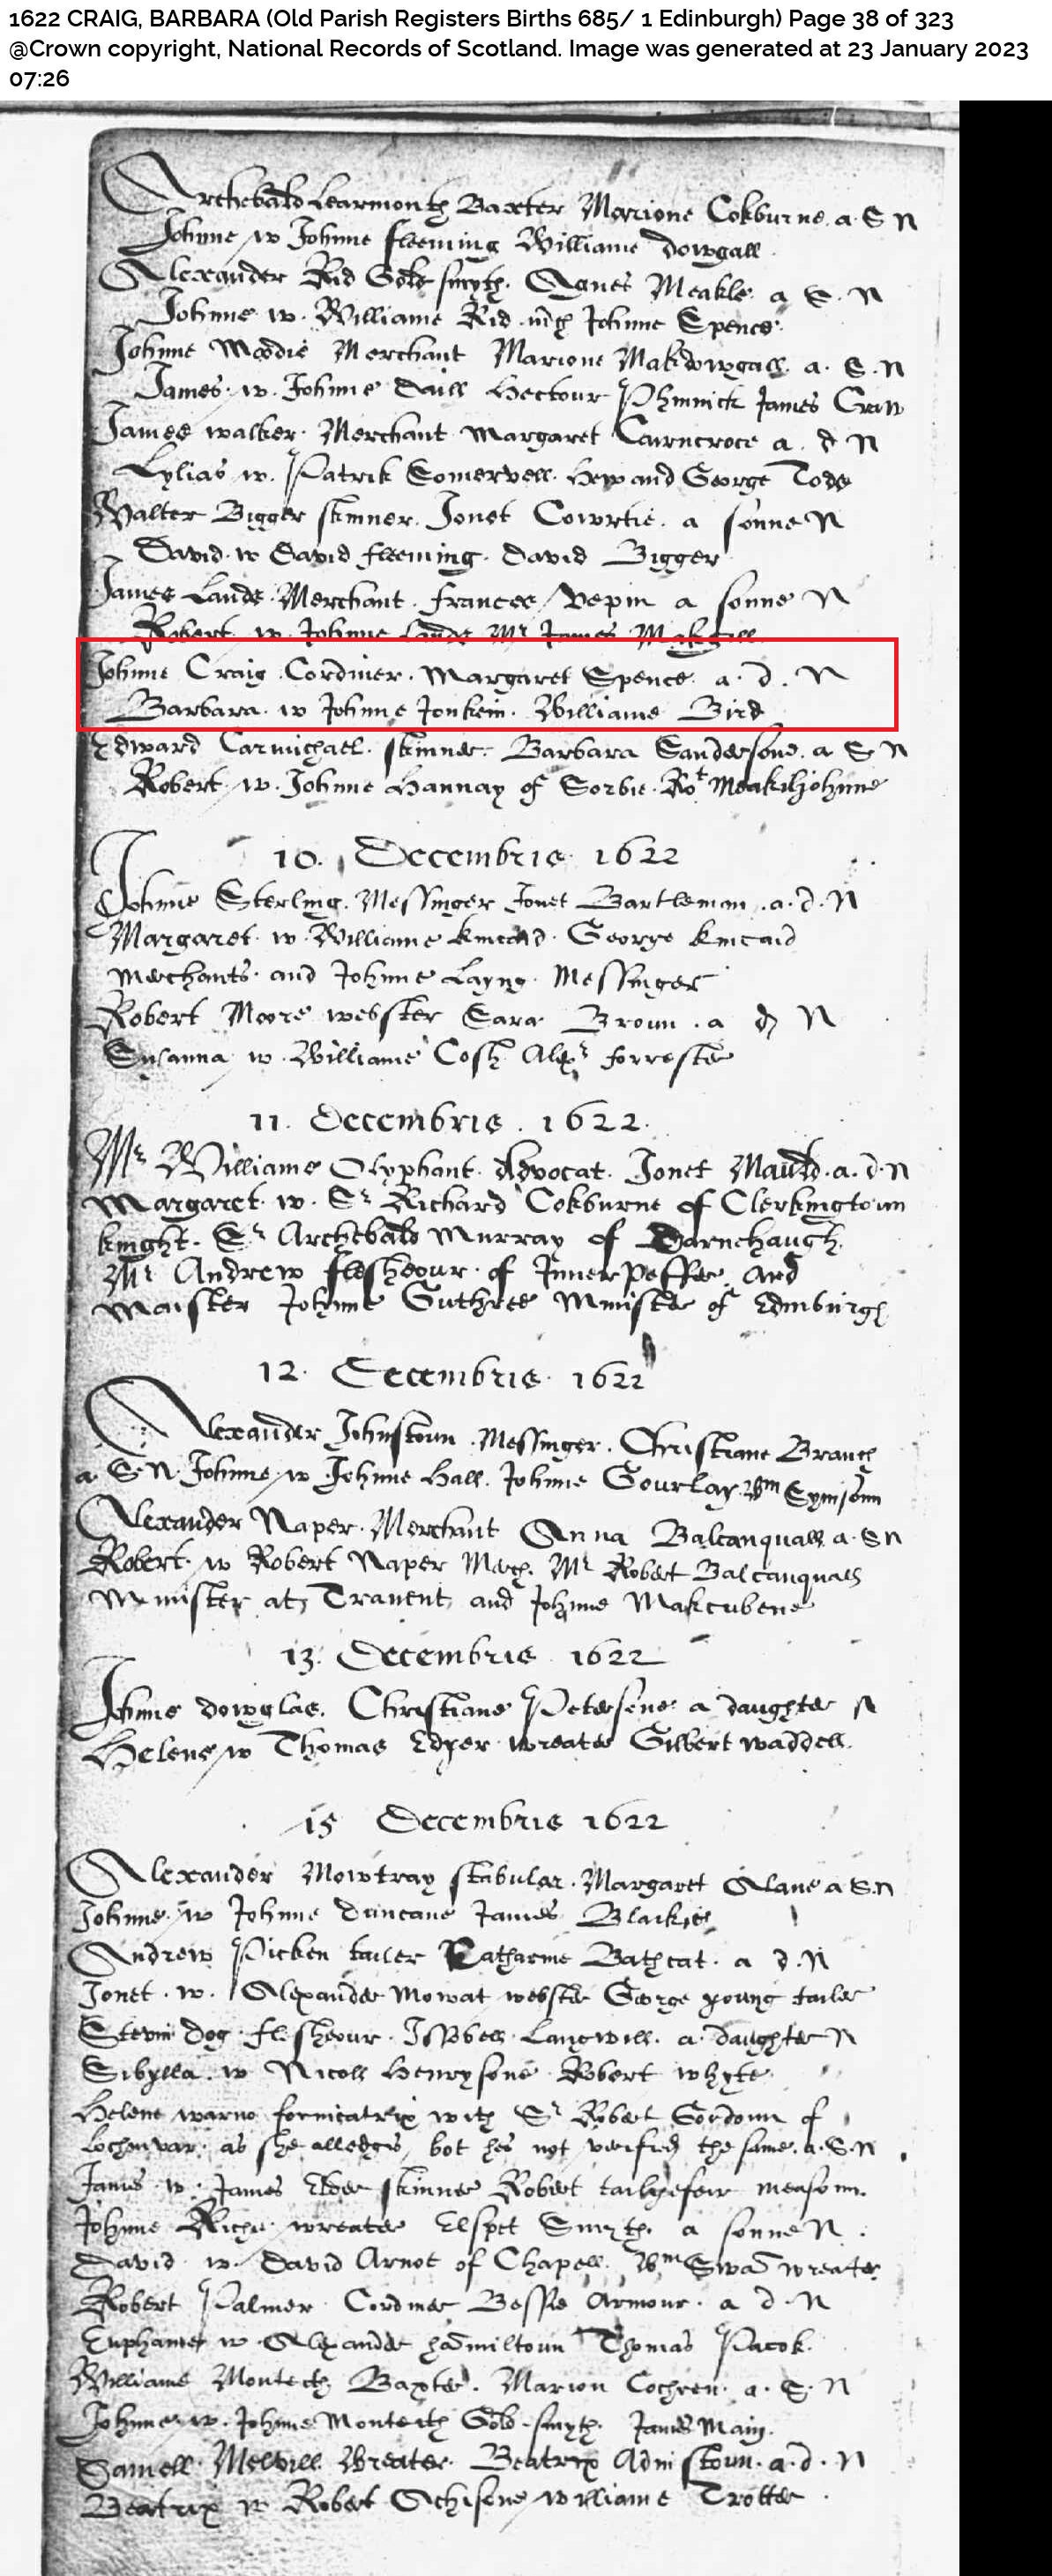 1622 CRAIG, BARBARA (Old Parish Registers Births 685/ 1 Edinburgh) Page 38 of 323
@Crown copyright, National Records of Scotland. Image was generated at 23 January 2023
07:26
Archebald Learmonth Baxter Marione Cokburne a S N
Johnne w Johnne fleeming Williame Dowgall
Alexander Rid Gold smyth. Agnes Meakle a S. N
Johnne w. Williame Rid mch Johnne Spence
Johnne Moodie Merchant Marione Makdowgall a. S. N
James w. Johnne Daill Hectour James Craw
James walker Merchant Margaret Cairncroce a d N
Lylias w. Patrik Somervell Hew and George Tode
Walter Bigger skinner Jonet Cowrtie a sonne N
David w David fleeming David Bigger
James Lande Merchant frances Vepin a sonne N
Robert w Johnne Lande Mr James Makgill
Johnne Craig Cordiner Margaret Spence a. d. N
Barbara w Johnne Jonkein Williame Bird
Edward Carmichael skinner Barbara Sandersone a S N
Robert w. Johnne Hannay of Sorbie Rot Meakiljohnne
10. Decembris 1622
Johnne Sterling Messinger Jonet Bartleman a. d. N
Margaret w. Williame kincaid George kincaid
merchants and Johnne Layng Messinger
Robert Moore webster Sara Broun a d N
Susanna w. Williame Cosh Alexr forrester
11. Decembris. 1622.
Mr Williame Olyphant Advocat. Jonet Mauld a. d. N
Margaret. w. Sr Richard Cokburne of Clerkingtoun
knight. Sr Archebald Murray of Darnehaugh
Mr Andrew fleshour of Innerpeffer and
Maister Johnne Guthree Minister of Edinburgh
12. Decembris 1622
Alexander Johnstoun Messinger. Christiane Branch
a. S. N Johnne w Johnne Hall. Johnne Gourlay Wm Symsonn
Alexander Naper Merchant Anna Balcanquall a. S N
Robert w Robert Naper Merch. Mr Robert Balcanquall
Minister at Tranent and Johnne Makcubene
13. Decembris 1622
Johnne dowglas. Christiane Petersene a daughter N
Helene w Thomas Edzer wreater Gilbert waddell
15 Decembris 1622
Alexander Mowtray stabular Margaret Alane a S. N
Johnne w Johnne Duncane James Blaikie
Andrew Picken tailer Katharine Bathcat a d. N
Jonet. w. Alexander Mowat webster George young tailer
Stevin Dog fleshour Issobell Langwill. a daughter N
Sibylla w Nicoll Henrysone Robert whyte
Helene warno fornicatrix with Sr Robert Gordoun of
Lochinvar as she alledgis bot hes not verified the same a. S. N
James w James Elder skinner Robert tailyefeir measonn
Johnne Riche wreater Elspet Smyth. a sonne N.
David w. David Arnot of Chapell Wm Swad wreater
Robert Palmer Cordiner Bessie Armour. a d. N
Euphame w Alexander hadmiltoun Thomas Pacok
Williame Monteith Baxter. Marion Cochren. a. S. N
Johnne w. Johnne Monteith Gold smyth James Main
Samell Melvill Wreater Beatrix Admstoun a. d. N
Beatrix w Robert Achisone williame Trotter